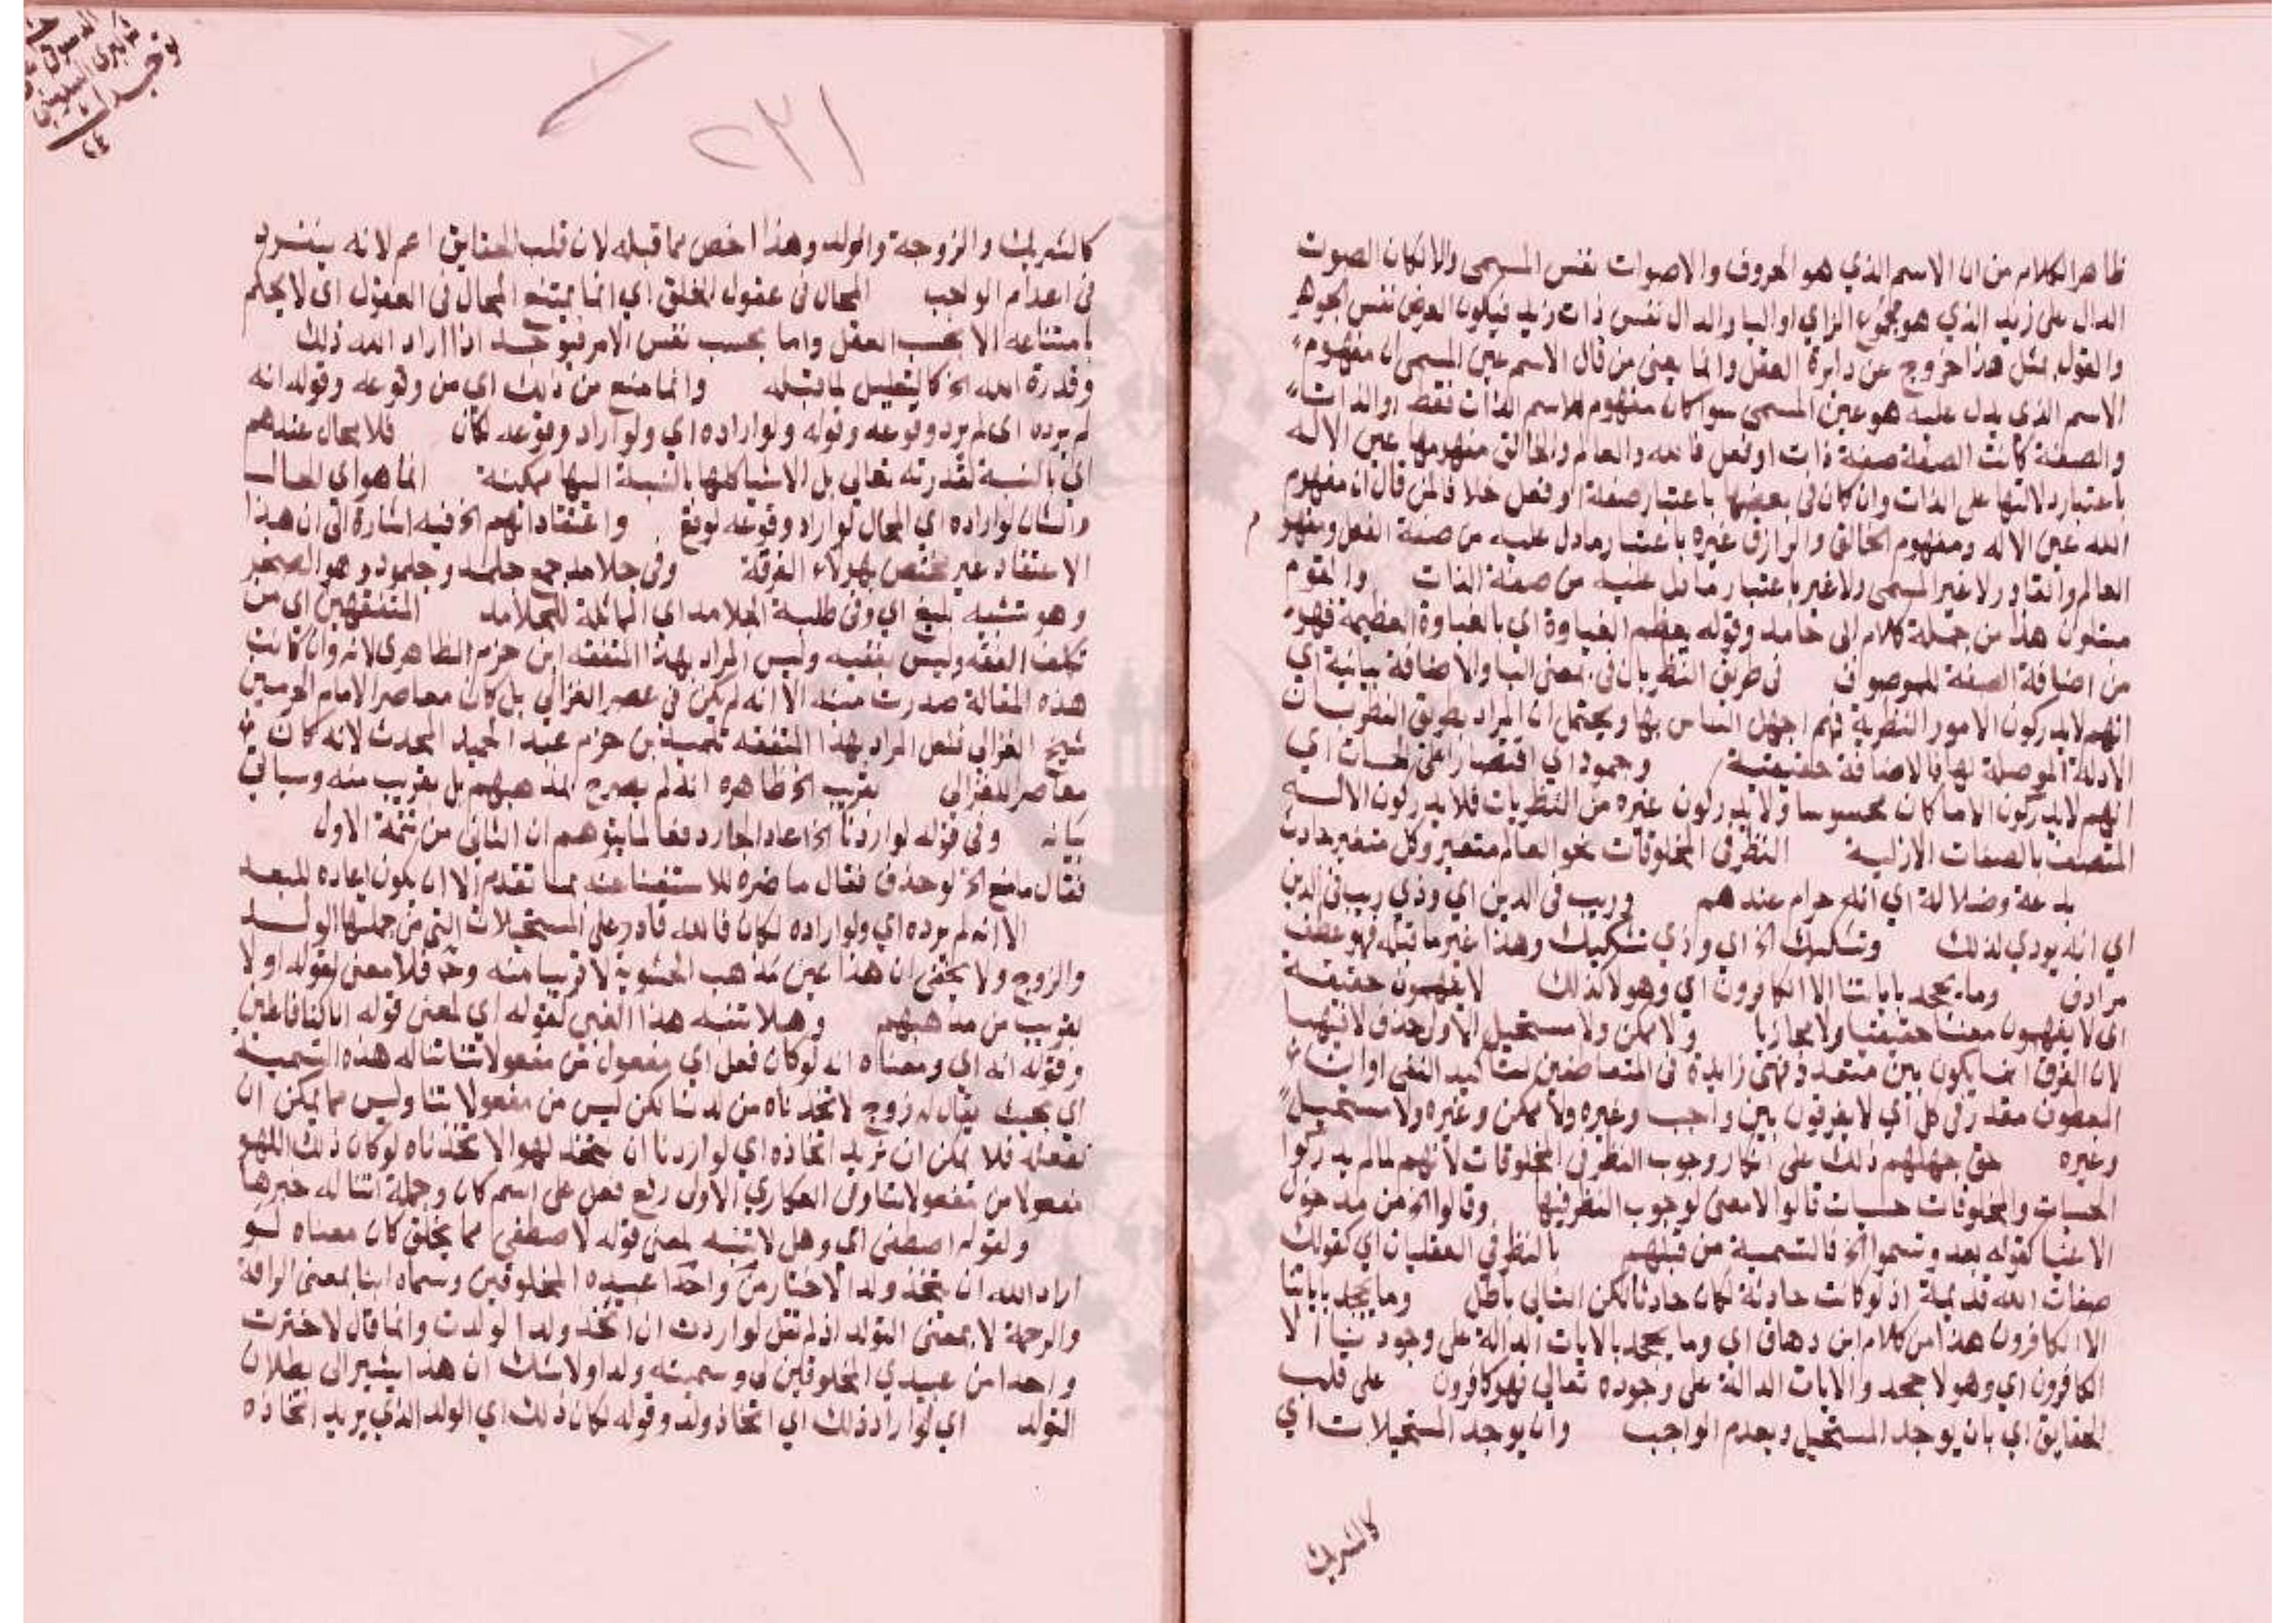 ظاهر الكلام من ان الاسم الذي هو الحروف والاصوات نفس المسمى والا لكان الصوت
الدال على زيد الذي هو مجموع الزاي واليا والدال نفس ذات زيد فيكون العرض نفس الجوهر
والقول بمثل هذا خروج عن دايرة العقل وانما يعني من قال الاسم عين المسمى ان مفهوم
الاسم الذي يدل عليه هو عين المسمى سوا كان مفهوم الاسم الذات فقط او الذات
والصفة كانت الصفة صفة ذات او فعل فالله والعالم والخالق مفهومها عين الاله
باعتبار دلالتها على الذات وان كان في بعضها باعتبار صفة او فعل خلافا لمن قال ان مفهوم
الله عين الاله ومفهوم الخالق والرازق غيره باعتبار ما دل عليه من صفة الفعل ومفهوم
العالم والقادر لا غير المسمى ولا غيره باعتبار ما دل عليه من صفة الذات والقوم
هذا من جملة كلام ابي حامد وقوله بعظم الغباوة اي بالغباوة العظيمة فهو
من اضافة الصفة للموصوف في طريق النظريات في بمعنى البا والاضافة بيانية اي
انهم لا يدركون الامور النظرية فهم اجهل الناس بها ويحتمل ان المراد بطريق النظريات
الادلة الموصلة لها فالاضافة حقيقية وجمود اي اقتصارا على الحسيات اي
انهم لا يدركون الا ما كان محسوسا ولا يدركون غيره من النظريات فلا يدركون الاله
المتصف بالصفات الازلية النظر في المخلوقات نحو العالم متغير وكل متغير حادث
بدعة وضلالة اي انه حرام عندهم وريب في الدين اي وذي ريب في الدين
اي انه يودي لذلك وتشكيك الخ اي وذي تشكيك وهذا غير ما قبله فهو عطف
مرادف وما يجحد باياتنا الا الكافرون اي وهولا كذلك لا يفهمون حقيقة
اي لا يفهمون معنا حقيقيا ولا مجازيا ولا ممكن ولا مستحيل الاولى حذف لا فيهما
لان الفرق انما يكون بين متعدد فهي زايدة في المتعاطفين لتاكيد النفي او ان
المعطوف مقدر في كل اي لا يفرقون بين واجب وغيره ولا ممكن وغيره ولا مستحيل
وغيره حتى جهلهم ذلك على انكار وجوب النظر في المخلوقات لانهم لما لم يدركوا
الحسيات والمخلوقات حسيات قالوا لا معنى لوجوب النظر فيها وقالوا الخ من مدخول
الاغنيا كقوله بعد وسموا الخ فالتسمية من قبلهم بالنظر في العقليات اي كقولك
صفات الله قديمة اذ لو كانت حادثة لكان حادثا لكن التالي باطل وما يجحد باياتنا
الا الكافرون هذا من كلام ابن دهاق اي وما يجحد بالايات الدالة على وجودنا الا
الكافرون اي وهولا جحدوا الايات الدالة على وجوده تعالى فهم كافرون على قلب
الحقايق اي بان يوجد المستحيل ويعدم الواجب وان يوجد المستحيلات اي
كالشريك
٢٣١
كالشريك والزوجة والولد وهذا اخص مما قبله لان قلب الحقايق اعم لانه ينفرد
في اعدام الواجب المحال في عقول الخلق اي انما يمتنع المحال في العقول اي لا يحكم
بامتناعه الا بحسب العقل واما بحسب نفس الامر فيوجد اذا اراد الله ذلك
وقدرة الله الخ كالتعليل لما قبله وانما منع من ذلك اي من وقوعه وقوله انه
لم يرده اي لم يرد وقوعه وقوله ولو اراده اي ولو اراد وقوعه لكان فلا محال عندهم
اي بالنسبة لقدرته تعالى بل الاشيا كلها بالنسبة اليها ممكنة انما هو اي الحال
والشان لو اراده اي المحال لو اراد وقوعه لوقع واعتقادانهم الخ فيه اشارة الى ان هذا
الاعتقاد غير مختص بهولاء الفرقة وفي جلامد جمع جلمد وجلمود وهو الصخر
وهو تشبيه بليغ اي وفي طلبة الجلامد اي المماثلة للجلامد المتفقهين اي من
تكلف الفقه وليس بفقيه وليس المراد بهذا المتفقه ابن حزم الظاهري لانه وان كانت
هذه المقالة صدرت منه الا انه لم يكن في عصر الغزالي بل كان معاصر الامام الحرمين
شيخ الغزالي فلعل المراد بهذا المتفقه تلميذ بن حزم عبد الحميد المحدث لانه كان
معاصر للغزالي بقريب الخ ظاهره انه لم يصرح بمذهبهم بل بقريب منه وسياتي
بيانه وفي قوله لو اردنا الخ اعاد الجار دفعا لما يتوهم ان الثاني من تتمة الاول
فقال ما منع الخ لو حذف فقال ما ضره للاستغنا عنه بما تقدم الا ان يكون اعاده للبعد
الا انه لم يرده اي ولو اراده لكان فالله قادر على المستحيلات التي من جملتها الولد
والزوج ولا يخفى ان هذا عين مذهب الحشوية لا قريبا منه وح فلا معنى لقوله اولا
بقريب من مذهبهم وهلا تنبه هذا الغبي لقوله اي لمعنى قوله ان كنا فاعلين
وقوله انه اي ومعناه انه لو كان فعل اي مفعول من مفعولاتنا تناله هذه التسمية
اي بحيث يقال له زوج لاتخذناه من لدنا لكن ليس من مفعولاتنا وليس مما يمكن ان
نفعله فلا يمكن ان نريد اتخاذه اي لو اردنا ان نتخذ لهوا لاتخذناه لو كان ذلك اللهو
مفعولا من مفعولاتنا وفي العكاري الاولى رفع فعل على اسم كان وجملة تناله خبرها
ولقوله اصطفى اي وهل لا تنبه لمعنى قوله لاصطفى مما يخلق كان معناه لو
اراد الله ان يتخذ ولدا لاختار من واحدا عبيده المخلوقين وسماه ابنا بمعنى الرافة
والرحمة لا بمعنى التولد اذ لم تقل لو اردت ان اتخذ ولدا لولدت وانما قال لاخترت
واحدا من عبيدي المخلوقين لي وسميته ولدا ولا شك ان هذا يشير الى بطلان
التولد اي لو اراد ذلك اي اتخاذ ولد وقوله لكان ذلك اي الولد الذي يريد اتخاذه